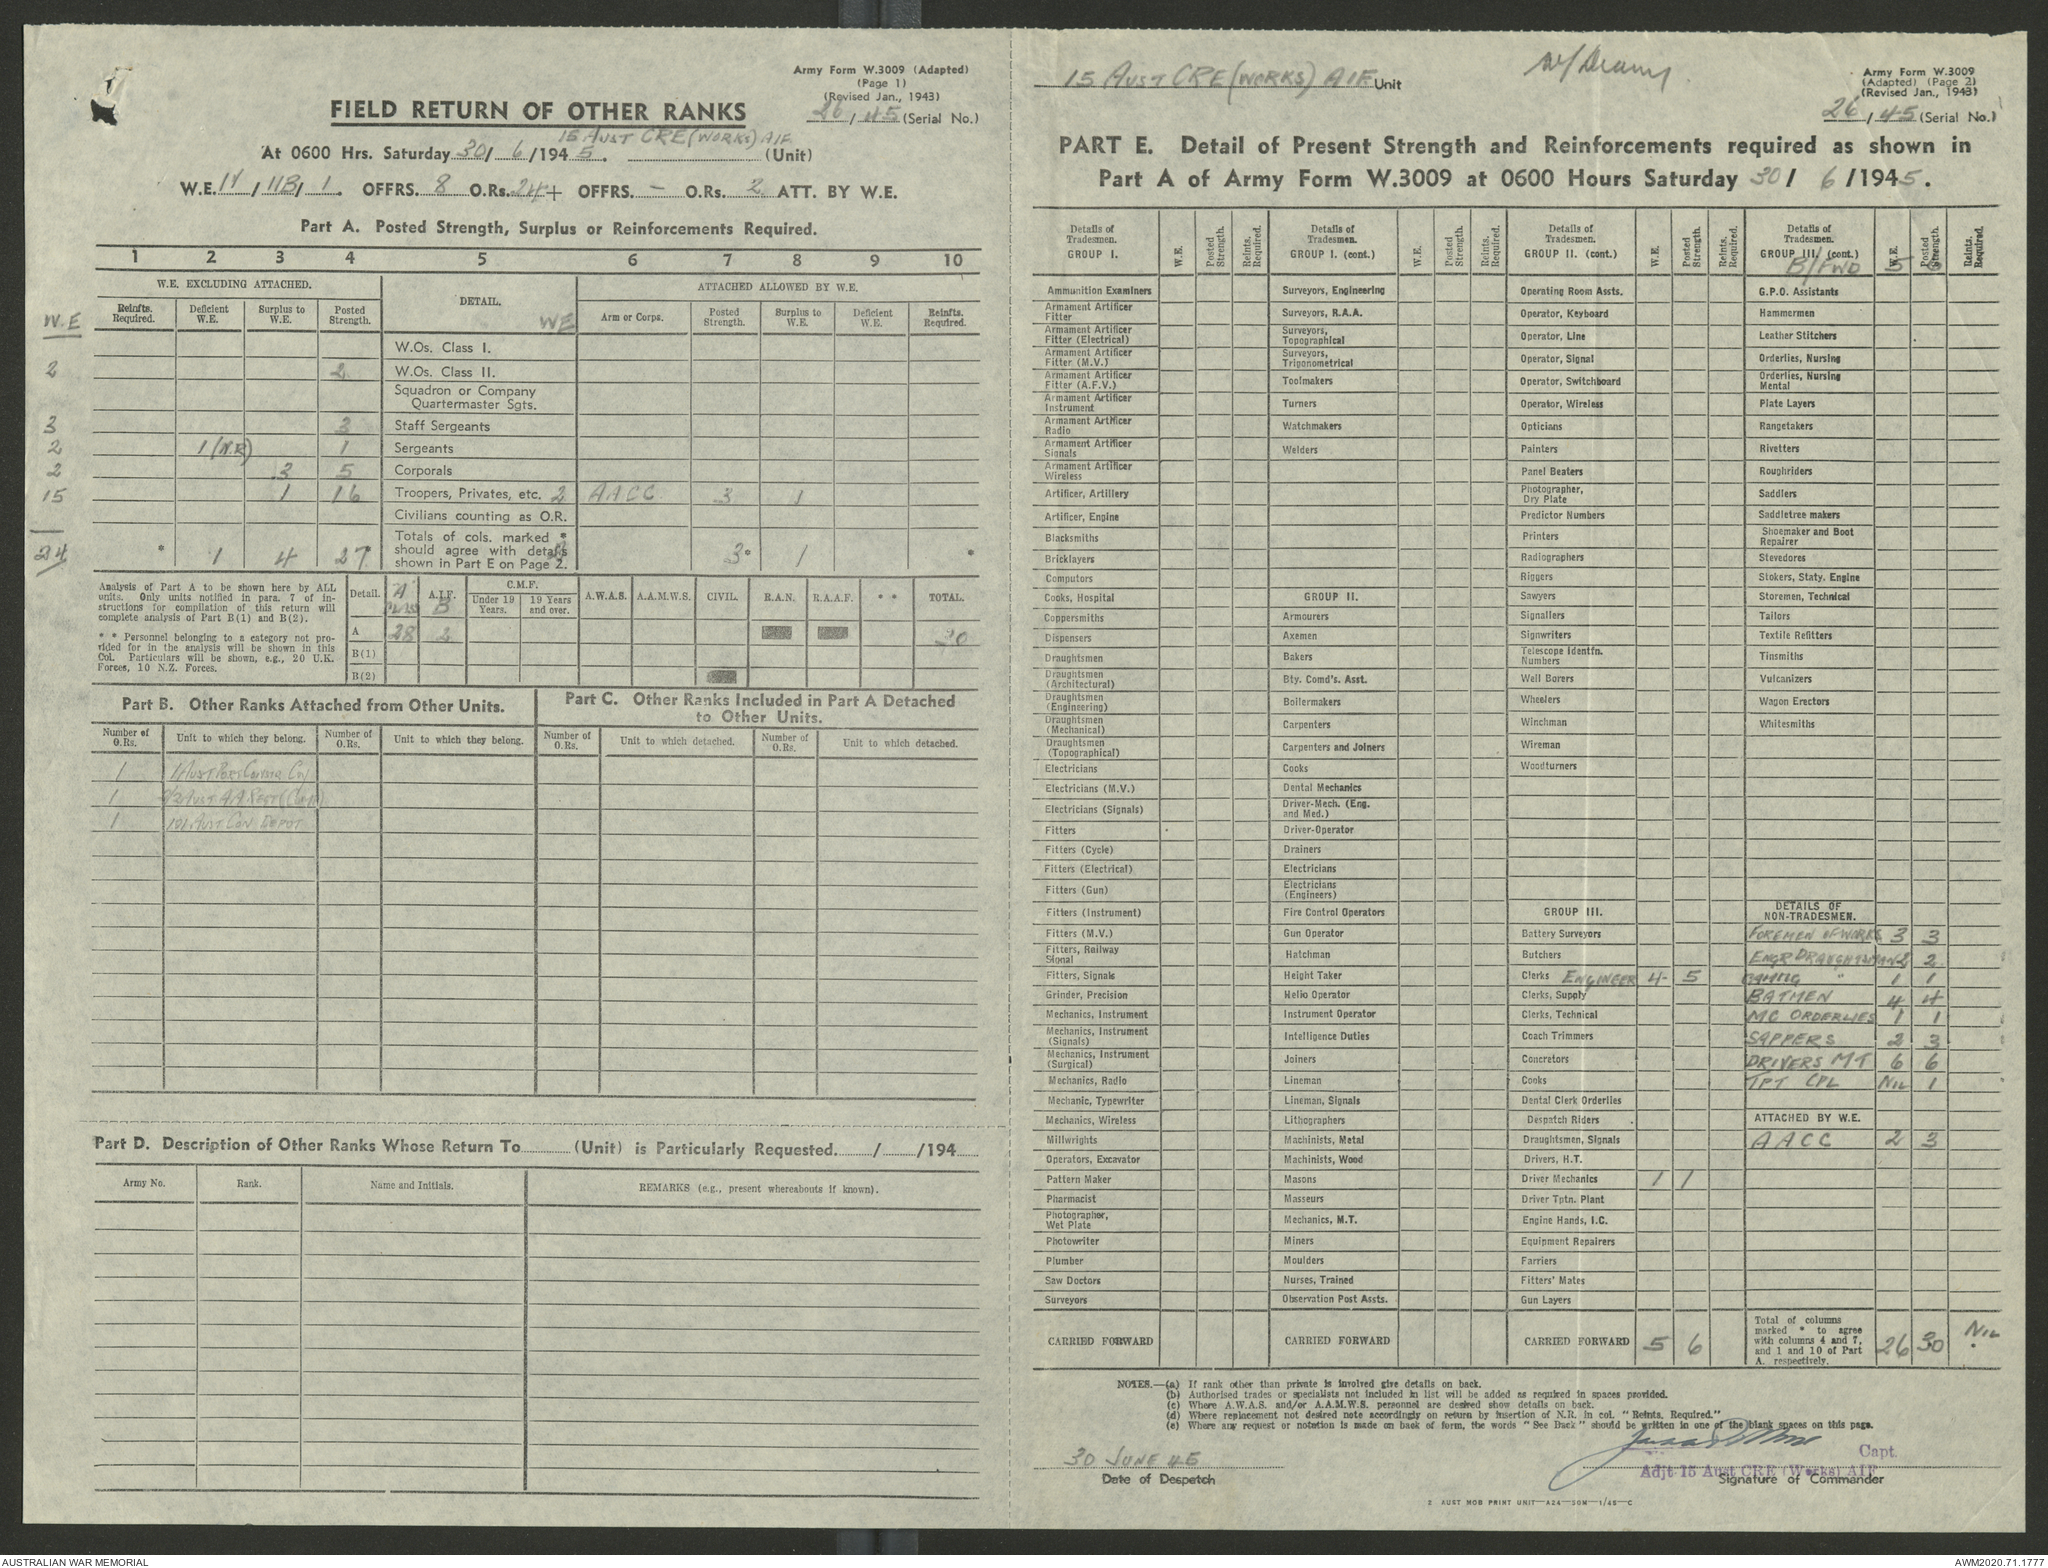 Army Form W.3009 (Adapted)
(Page 1)
(Revised Jan., 1943)
FIELD RETURN OF OTHER RANKS
26/45 (Serial No.)
15 AUST CRE (WORKS) AIF
At 0600 Hrs. Saturday 30/ 6 /1945. (Unit)
W.E. / 11B/ 1. OFFRS. 8 O.Rs. 24 + OFFRS. – O.Rs. 2 ATT. BY W.E.
Part A. Posted Strength, Surplus or Reinforcements Required.
1 2 3 4 5 6 7 8 9 10
W.E. EXCLUDING ATTACHED. DETAIL. ATTACHED ALLOWED BY W.E.
W.E Reinfts. Required. Deficient W.E. Surplus to W.E. Posted Strength. WE Arm or Corps. Posted Strength. Surplus to W.E. Deficient W.E. Reinfts. Required.
W.Os. Class I.
2 2 W.Os. Class II.
Squadron or Company
Quartermaster Sgts.
3 3 Staff Sergeants
2 1 (N.R) 1 Sergeants
2 3 5 Corporals
15 1 16 Troopers, Privates, etc. 2 AACC. 3 1
Civilians counting as O.R.
24 * 1 4 27* Totals of cols. marked *
should agree with details
shown in Part E on Page 2. 2 3* 1 *
Analysis of Part A to be shown here by ALL
units. Only units notified in para. 7 of in-
structions for compilation of this return will
complete analysis of Part B(1) and B(2).
* * Personnel belonging to a category not pro-
vided for in the analysis will be shown in this
Col. Particulars will be shown, e.g., 20 U.K.
Forces, 10 N.Z. Forces.
Detail. A A.I.F. B C.M.F. Under 19 Years. 19 Years and over. A.W.A.S. A.A.M.W.S. CIVIL. R.A.N. R.A.A.F. * * TOTAL.
A 28 2 30
B(1)
B(2)
Part B. Other Ranks Attached from Other Units.
Part C. Other Ranks Included in Part A Detached
to Other Units.
Number of O.Rs. Unit to which they belong. Number of O.Rs. Unit to which they belong. Number of O.Rs. Unit to which detached. Number of O.Rs. Unit to which detached.
1 1 AUST PORT CONSTR COY
1 2/3 AUST A.A. REGT (COMP)
1 101 AUST CON DEPOT
Part D. Description of Other Ranks Whose Return To (Unit) is Particularly Requested. / /194
Army No. Rank. Name and Initials. REMARKS (e.g., present whereabouts if known).
15 AUST CRE (WORKS) AIF Unit
Army Form W.3009
(Adapted) (Page 2)
(Revised Jan., 1943)
26/45 (Serial No.)
PART E. Detail of Present Strength and Reinforcements required as shown in
Part A of Army Form W.3009 at 0600 Hours Saturday 30/ 6 /1945.
Details of Tradesmen. GROUP I. W.E. Posted Strength. Reints. Required.
Ammunition Examiners
Armament Artificer
Fitter
Armament Artificer
Fitter (Electrical)
Armament Artificer
Fitter (M.V.)
Armament Artificer
Fitter (A.F.V.)
Armament Artificer
Instrument
Armament Artificer
Radio
Armament Artificer
Signals
Armament Artificer
Wireless
Artificer, Artillery
Artificer, Engine
Blacksmiths
Bricklayers
Computors
Cooks, Hospital
Coppersmiths
Dispensers
Draughtsmen
Draughtsmen
(Architectural)
Draughtsmen
(Engineering)
Draughtsmen
(Mechanical)
Draughtsmen
(Topographical)
Electricians
Electricians (M.V.)
Electricians (Signals)
Fitters
Fitters (Cycle)
Fitters (Electrical)
Fitters (Gun)
Fitters (Instrument)
Fitters (M.V.)
Fitters, Railway
Signal
Fitters, Signals
Grinder, Precision
Mechanics, Instrument
Mechanics, Instrument
(Signals)
Mechanics, Instrument
(Surgical)
Mechanics, Radio
Mechanic, Typewriter
Mechanics, Wireless
Millwrights
Operators, Excavator
Pattern Maker
Pharmacist
Photographer,
Wet Plate
Photowriter
Plumber
Saw Doctors
Surveyors
CARRIED FORWARD
Details of Tradesmen. GROUP I. (cont.) W.E. Posted Strength. Reints. Required.
Surveyors, Engineering
Surveyors, R.A.A.
Surveyors,
Topographical
Surveyors,
Trigonometrical
Toolmakers
Turners
Watchmakers
Welders
GROUP II.
Armourers
Axemen
Bakers
Bty. Comd's. Asst.
Boilermakers
Carpenters
Carpenters and Joiners
Cooks
Dental Mechanics
Driver-Mech. (Eng.
and Med.)
Driver-Operator
Drainers
Electricians
Electricians
(Engineers)
Fire Control Operators
Gun Operator
Hatchman
Height Taker
Helio Operator
Instrument Operator
Intelligence Duties
Joiners
Lineman
Lineman, Signals
Lithographers
Machinists, Metal
Machinists, Wood
Masons
Masseurs
Mechanics, M.T.
Miners
Moulders
Nurses, Trained
Observation Post Assts.
CARRIED FORWARD
Details of Tradesmen. GROUP II. (cont.) W.E. Posted Strength. Reints. Required.
Operating Room Assts.
Operator, Keyboard
Operator, Line
Operator, Signal
Operator, Switchboard
Operator, Wireless
Opticians
Painters
Panel Beaters
Photographer,
Dry Plate
Predictor Numbers
Printers
Radiographers
Riggers
Sawyers
Signallers
Signwriters
Telescope Identfn.
Numbers
Well Borers
Wheelers
Winchman
Wireman
Woodturners
GROUP III.
Battery Surveyors
Butchers
Clerks ENGINEER 4 5
Clerks, Supply
Clerks, Technical
Coach Trimmers
Concretors
Cooks
Dental Clerk Orderlies
Despatch Riders
Draughtsmen, Signals
Drivers, H.T.
Driver Mechanics 1 1
Driver Tptn. Plant
Engine Hands, I.C.
Equipment Repairers
Farriers
Fitters' Mates
Gun Layers
CARRIED FORWARD 5 6
Details of Tradesmen. GROUP III. (cont.) W.E. Posted Strength. Reints. Required.
B/FWD 5 6
G.P.O. Assistants
Hammermen
Leather Stitchers
Orderlies, Nursing
Orderlies, Nursing
Mental
Plate Layers
Rangetakers
Rivetters
Roughriders
Saddlers
Saddletree makers
Shoemaker and Boot
Repairer
Stevedores
Stokers, Staty. Engine
Storemen, Technical
Tailors
Textile Refitters
Tinsmiths
Vulcanizers
Wagon Erectors
Whitesmiths
DETAILS OF
NON-TRADESMEN.
FOREMEN OF WORKS 3 3
ENGR DRAUGHTSMAN 2 2
" 1 1
BATMEN 4 4
MC ORDERLIES 1 1
SAPPERS 2 3
DRIVERS MT 6 6
TPT CPL NIL 1
ATTACHED BY W.E.
AACC 2 3
Total of columns
marked * to agree
with columns 4 and 7,
and 1 and 10 of Part
A. respectively. 26 30 NIL
NOTES.—(a) If rank other than private is involved give details on back.
(b) Authorised trades or specialists not included in list will be added as required in spaces provided.
(c) Where A.W.A.S. and/or A.A.M.W.S. personnel are desired show details on back.
(d) Where replacement not desired note accordingly on return by insertion of N.R. in col. "Reints. Required."
(e) Where any request or notation is made on back of form, the words "See Back" should be written in one of the blank spaces on this page.
30 JUNE 45
Date of Despatch
Capt.
Adjt 15 Aust CRE (Works) AIF
Signature of Commander
2 AUST MOB PRINT UNIT—A24—50M—1/45—C
AUSTRALIAN WAR MEMORIAL
AWM2020.71.1777